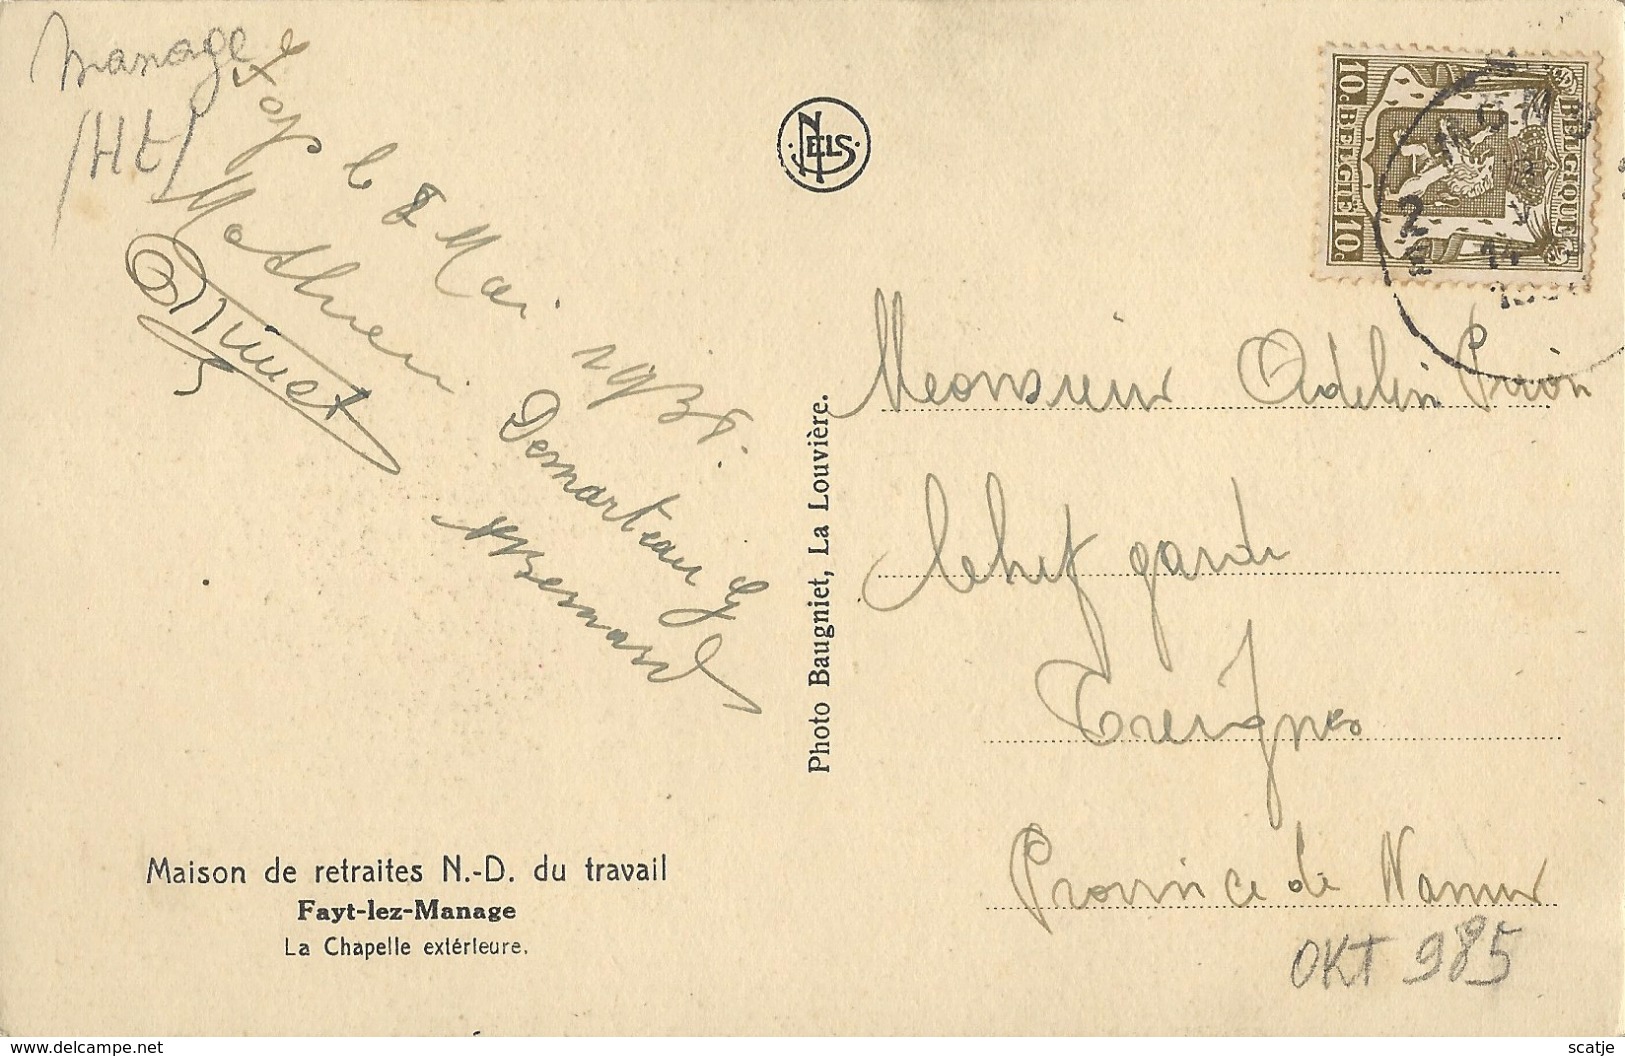 Manage
/Ht/
le 8 Mai 1938.
Mathieu
Desmarteau G
Bernard
NELS
BELGIQUE
10c BELGIE 10c
Monsieur Adelin Piron
Chef garde
Treignes
Province de Namur
OKT 985
Photo Baugniet, La Louvière.
Maison de retraites N.-D. du travail
Fayt-lez-Manage
La Chapelle extérieure.
www.delcampe.net
scatje